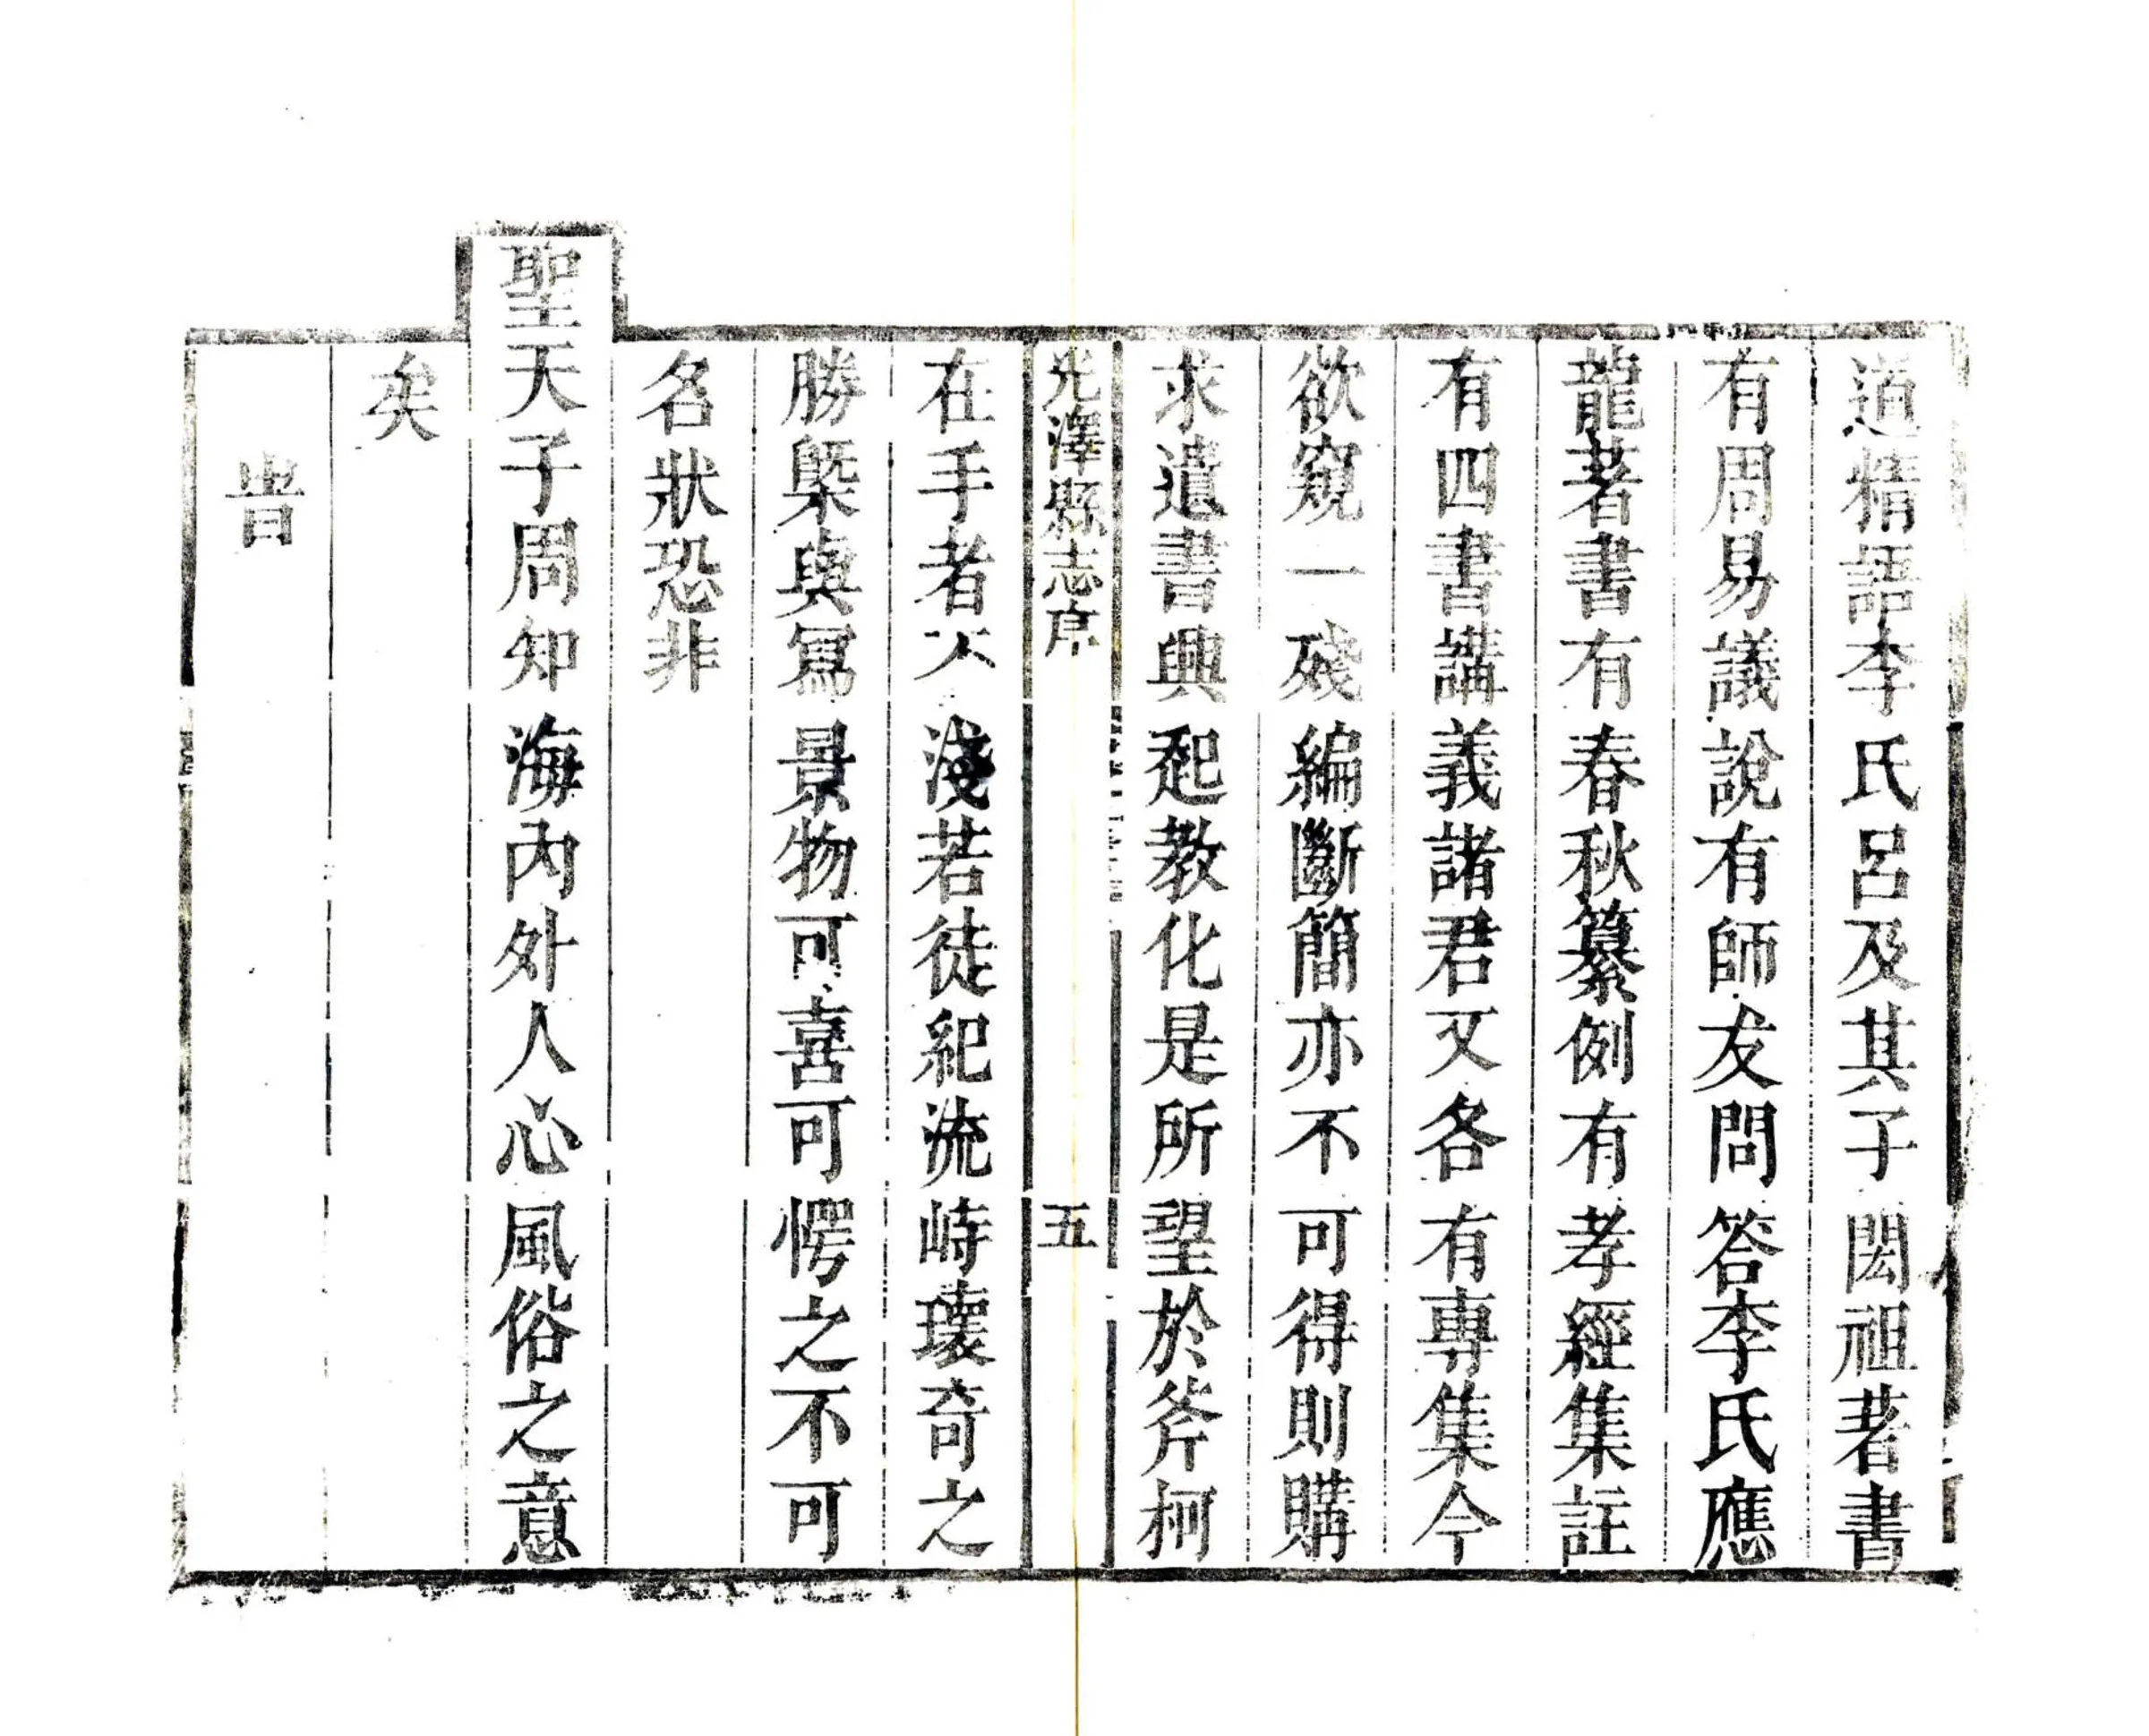 道精語李氏呂及其子閎祖著書
有周易議說有師友問答李氏應
龍著書有春秋纂例有孝經集註
有四書講義諸君又各有專集今
欲窺一殘編斷簡亦不可得則購
求遺書興起教化是所望於斧柯
光澤縣志序
五
在手者不淺若徒紀流峙瓌奇之
勝槩與寫景物可喜可愕之不可
名狀恐非
聖天子周知海內外人心風俗之意
矣
旹